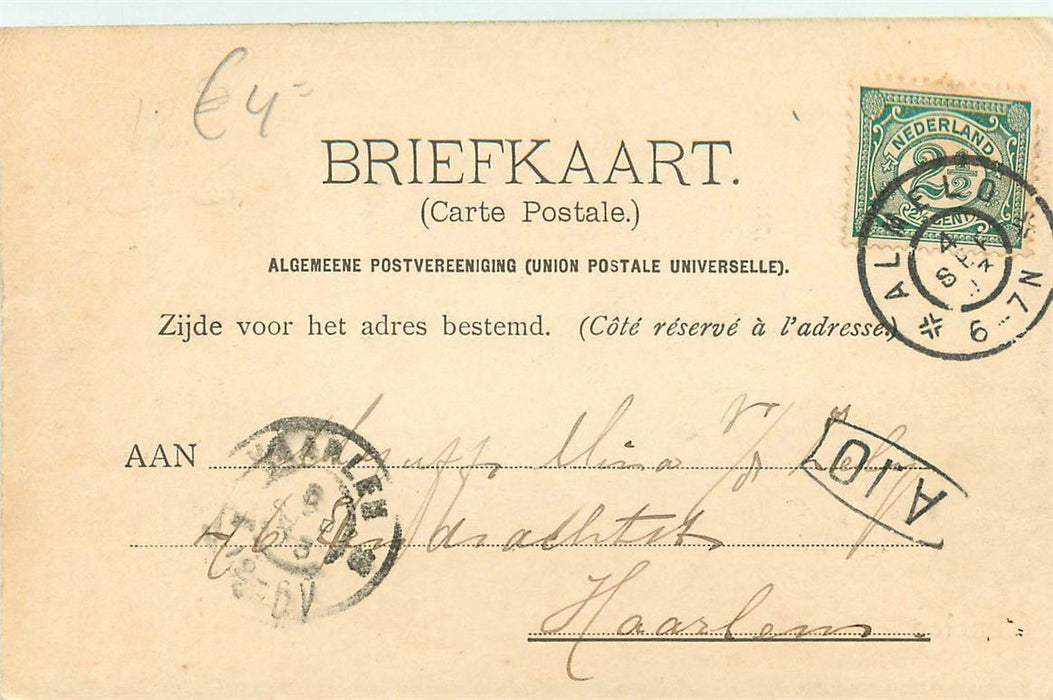 € 4-
BRIEFKAART.
(Carte Postale.)
ALGEMEENE POSTVEREENIGING (UNION POSTALE UNIVERSELLE).
Zijde voor het adres bestemd. (Côté réservé à l'adresse.)
NEDERLAND
2½
CENT
ALMELO
4 SEP
6-7N
AAN Mejuffr Mina v/d
46 Eendrachtstr
Haarlem.
HAARLEM
A.10